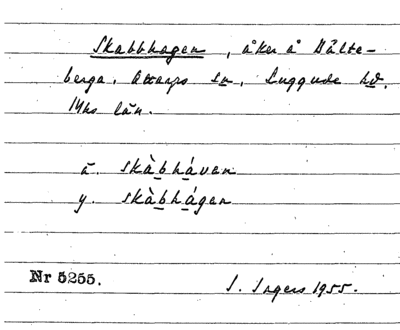 Skabbhagen, åker å Hålte-
berga, Ottarps sn, Luggude hd,
Mhs län.
ä. skàbhávan
y. skàbhágan
Nr 5255. I. Ingers 1955.